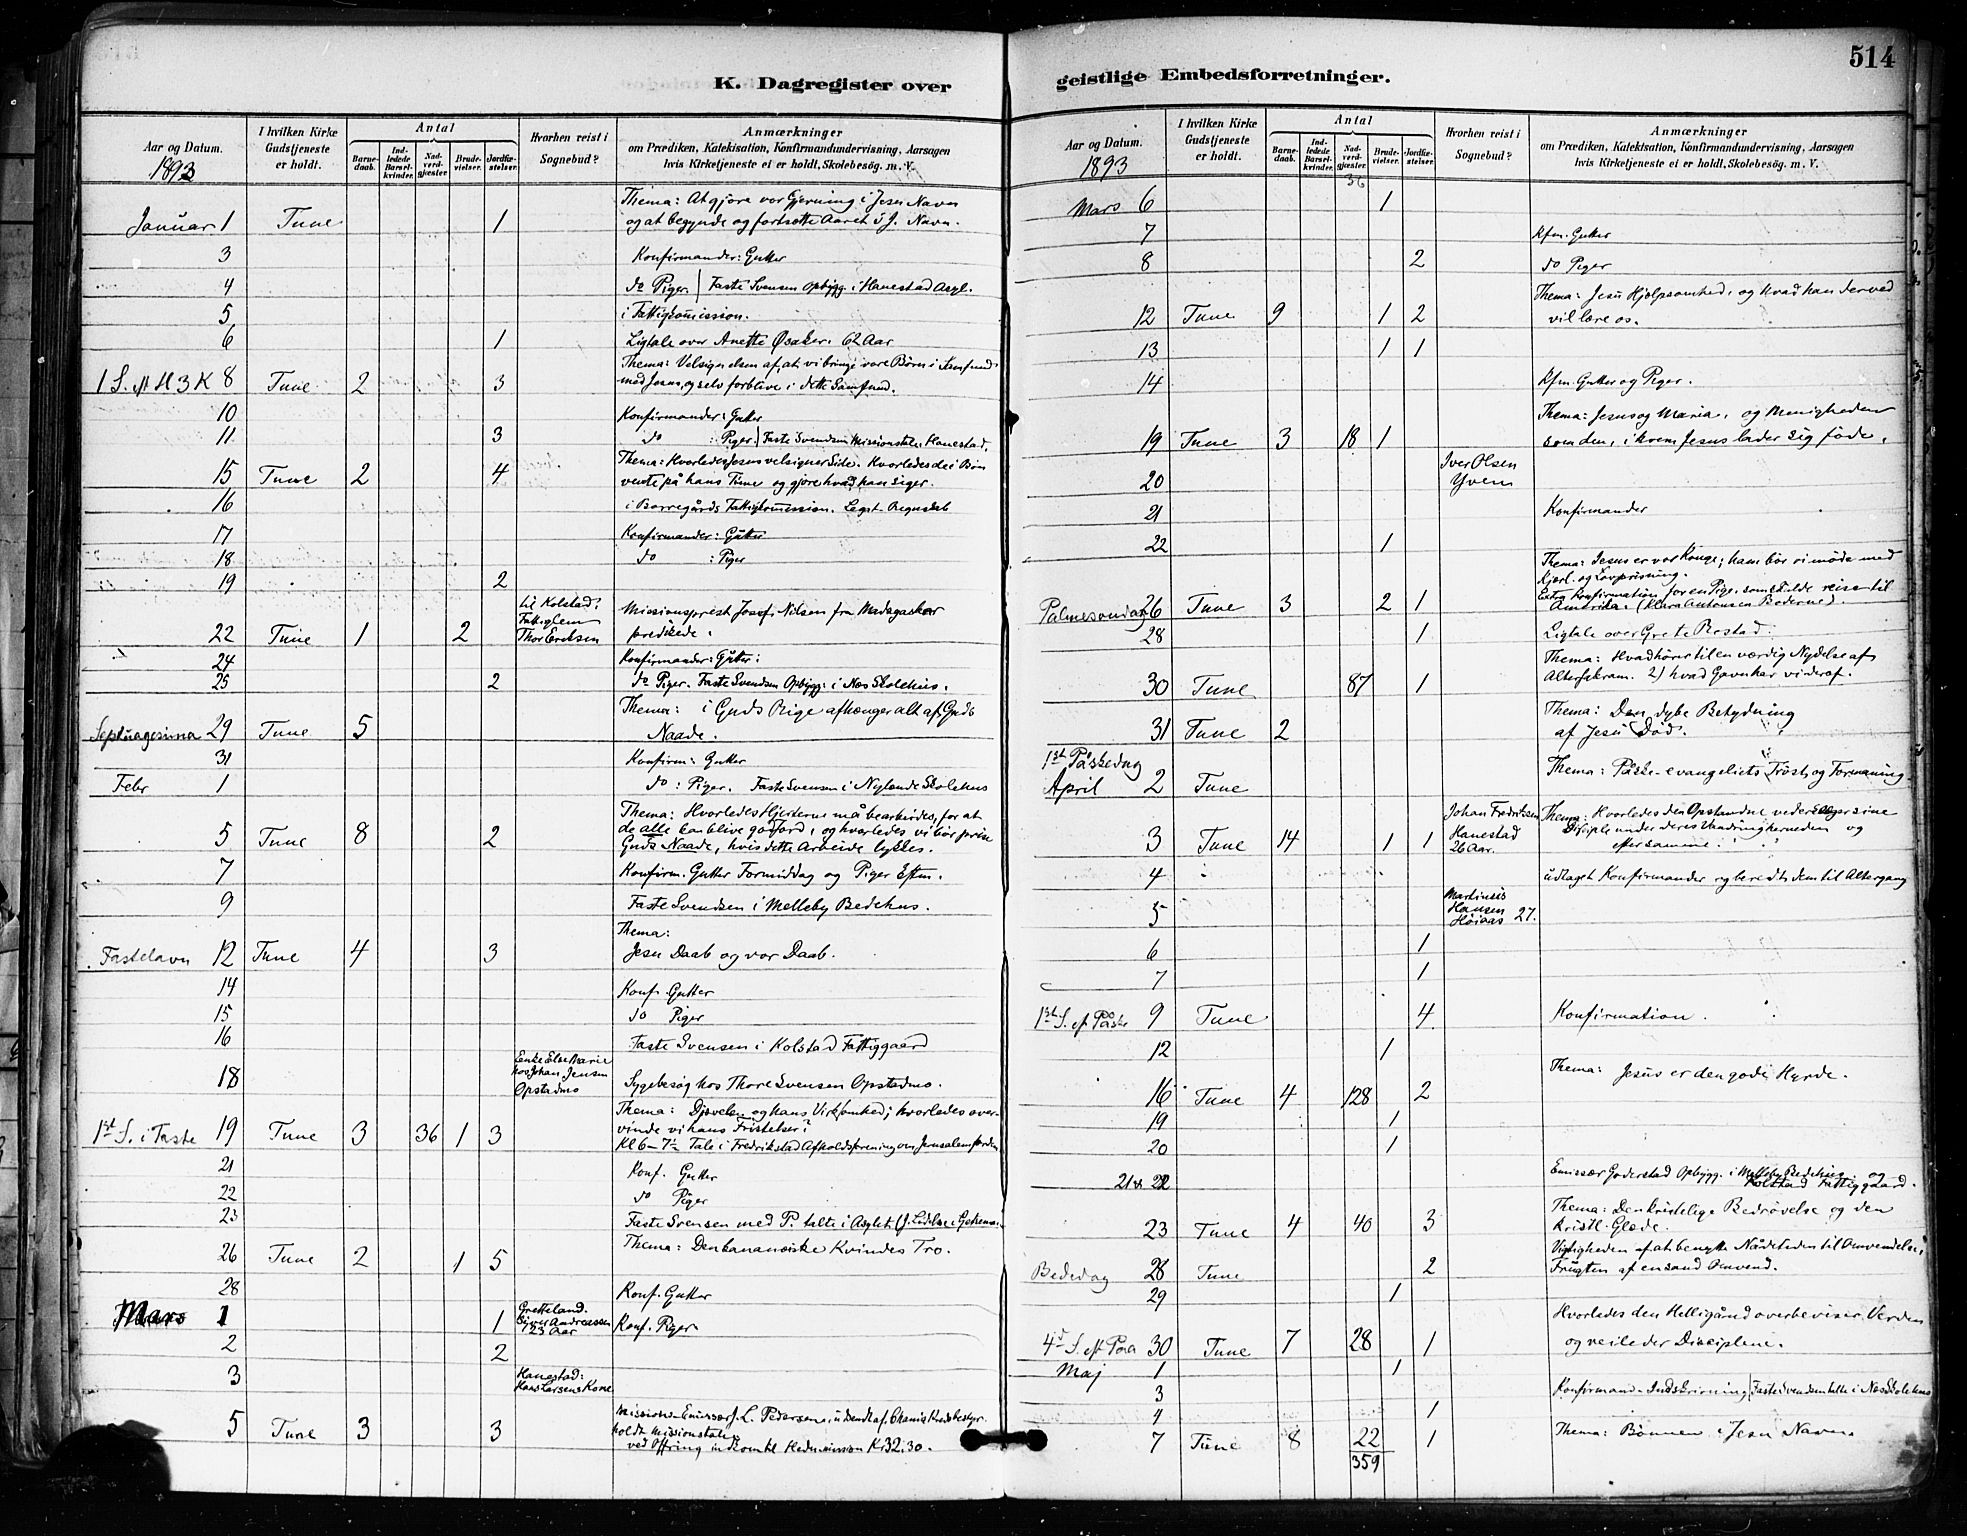 514
K. Dagregister over
Aar og Datum.
1893
I hvilken Kirke
Gudstjeneste
er holdt.
Antal
Barne-
daab.
Ind-
ledede
Barsel-
kvinder.
Nad-
verd-
gjester
Brude-
vielser.
Jordfæ-
stelser.
Hvorhen reist i
Sognebud?
Anmærkninger
om Prædiken, Katekisation, Konfirmandundervisning, Aarsagen
hvis Kirketjeneste ei er holdt, Skolebesøg. m. V.
Thema: At gjøre vor Gjerning i Jesu Navn
Januar 1 Tune 1 og at begynde og fortsætte Aaret i J. Navn.
3 Konfirmander: Gutter
4 do Piger. Faste Svensen Opbygg. i Hanestad Asyl.
5 i Fattigkommission.
6 1 Ligtale over Anette Øsaker. 62 Aar
Thema: Velsignelsen af, at vi bringe vore Børn i Samfund
1 S. H 3 K 8 Tune 2 3 med Jesus, og selv forblive i dette Samfund.
10 Konfirmander: Gutter
11 3 do : Piger Faste Svendsen Missionstale Hanestad.
Thema: Hvorledes Jesus velsigner Side. Hvorledes de i Bøn
15 Tune 2 4 vente på hans Time og gjøre hvad han siger.
16 i Borregårds Fattigkommission. Regnskab
17 Konfirmander: Gutter
18 do : Piger
19 2
til Kolstad:
Fattiglem
Missionsprest Josef Nilsen fra Madagaskar
22 Tune 1 2 Thor Eriksen prædikede.
24 Konfirmander: Gutter:
25 2 do Piger. Faste Svendsen Opbygg: i Næs Skolehus.
Thema: i Guds Rige afhænger alt af Guds
Septuagesima 29 Tune 5 Naade.
31 Konfirm: Gutter
Febr 1 do : Piger. Faste Svensen i Nylande Skolehus
Thema: Hvorledes Hjerterne må bearbeides, for at
5 Tune 8 2 de alle kan blive god Jord, og hvorledes vi bør prise
Guds Naade, hvis dette Arbeide lykkes.
7 Konfirm. Gutter Formiddag og Piger Eftm.
9 Faste Svendsen i Melleby Bedehus.
Thema:
Fastelavn 12 Tune 4 3 Jesu Daab og vor Daab.
14 Konf. Gutter
15 do Piger
16 Faste Svensen i Kolstad Fattiggaard
Enke Else Marie
hos Johan Jensen
18 Opstadmo Sygebesøg hos Thore Svensen Opstadmo.
Thema: Djævelen og hans Virksomhed; hvorledes over-
1st S. i Faste 19 Tune 3 36 1 3 vinde vi hans Fristelser?
Kl 6 - 7½ Tale i Fredrikstad Afholdsforening om Jerusalemsfærden
21 Konf. Gutter
22 do Piger
23 Faste Svensen med P. talte i Asylet (J. Lidelse i Gethsem.
26 Tune 2 1 5 Thema: Den kananæiske Kvindes Tro.
28 Konf. Gutter
Mars 1 1 Gretteland.
Andreassen
23 Aar Konf. Piger
2 2
3 Hanestad:
Hans Larsens Kone
Missions-Emissær J. L. Pedersen, udsendt af Kredsbestyr.
5 Tune 3 3 holdt Missionstale
ved Offring indkom til Hedn. mission Kr 32.30.
geistlige Embedsforretninger.
Aar og Datum.
1893
I hvilken Kirke
Gudstjeneste
er holdt.
Antal
Barne-
daab.
Ind-
ledede
Barsel-
kvinder.
Nad-
verd-
gjester
Brude-
vielser.
Jordfæ-
stelser.
Hvorhen reist i
Sognebud?
Anmærkninger
om Prædiken, Katekisation, Konfirmandundervisning, Aarsagen
hvis Kirketjeneste ei er holdt, Skolebesøg. m. V.
36
Mars 6 1
7 Kfm. Gutter
8 2 do Piger
Thema: Jesu Hjelpsomhed, og hvad han derved
12 Tune 9 1 2 vil lære os.
13 1 1
14 Kfm. Gutter og Piger.
Thema: Jesus og Maria, og Menigheden
19 Tune 3 18 1 som den, i hvem Jesus lader sig føde.
Iver Olsen
20 Yven
21 Konfirmander
22 1
Thema: Jesus er vor Konge; ham bør vi møde med
Kjærl. og Lovprisning.
Extra Konfirmation for en Pige, som skulde reise til
Palmesondag 26 Tune 3 2 1 Amerika. (Klara Antonsen Boderne).
28 1 Ligtale over Grete Restad.
Thema: Hvad hører til en værdig Nydelse af
30 Tune 87 1 Altersakram. 2) hvad Gavn har vi deraf.
Thema: Den dybe Betydning
31 Tune 2 af Jesu Død.
1st Påskedag
April 2 Tune Thema: Påske-evangeliets Trøst og Formaning
Johan Fredriksen Thema: Hvorledes den Opstandne vederqvæger sine
Hanestad Disciple under deres Vandring herneden og
3 Tune 14 1 1 26 Aar. efter samme.
4 udtaget Konfirmander og beredt dem til Altergang
5 Martinius
Hansen
Høiaas 27.
6 1
7 1
1st S. ef. Påske 9 Tune 4 Konfirmation.
12 1
Thema: Jesus er den gode Hyrde.
16 Tune 4 128 2
19 1
20 1
21 & 22 Emissær Goderstad Opbygg. i Melleby Bedehus og
Kolstad Fattiggaard.
Thema: Den kristelige Bedrøvelse og den
23 Tune 4 40 3 kristl. Glæde.
Vigtigheden af at benytte Nådetiden til Omvendelse,
Bededag 28 Tune 2 Frugten af en sand Omvend.
29 1
Hvorledes den Helligånd overbeviser Verden
4d S. ef. Påske 30 Tune 7 28 1 og veileder Disciplene.
Maj 1 1
3 Konfirmand-Indskrivning Faste Svendsen talte i Næs Skolehus
4 1
7 Tune 8 22 1 Thema: Bønnen i Jesu Navn.
359